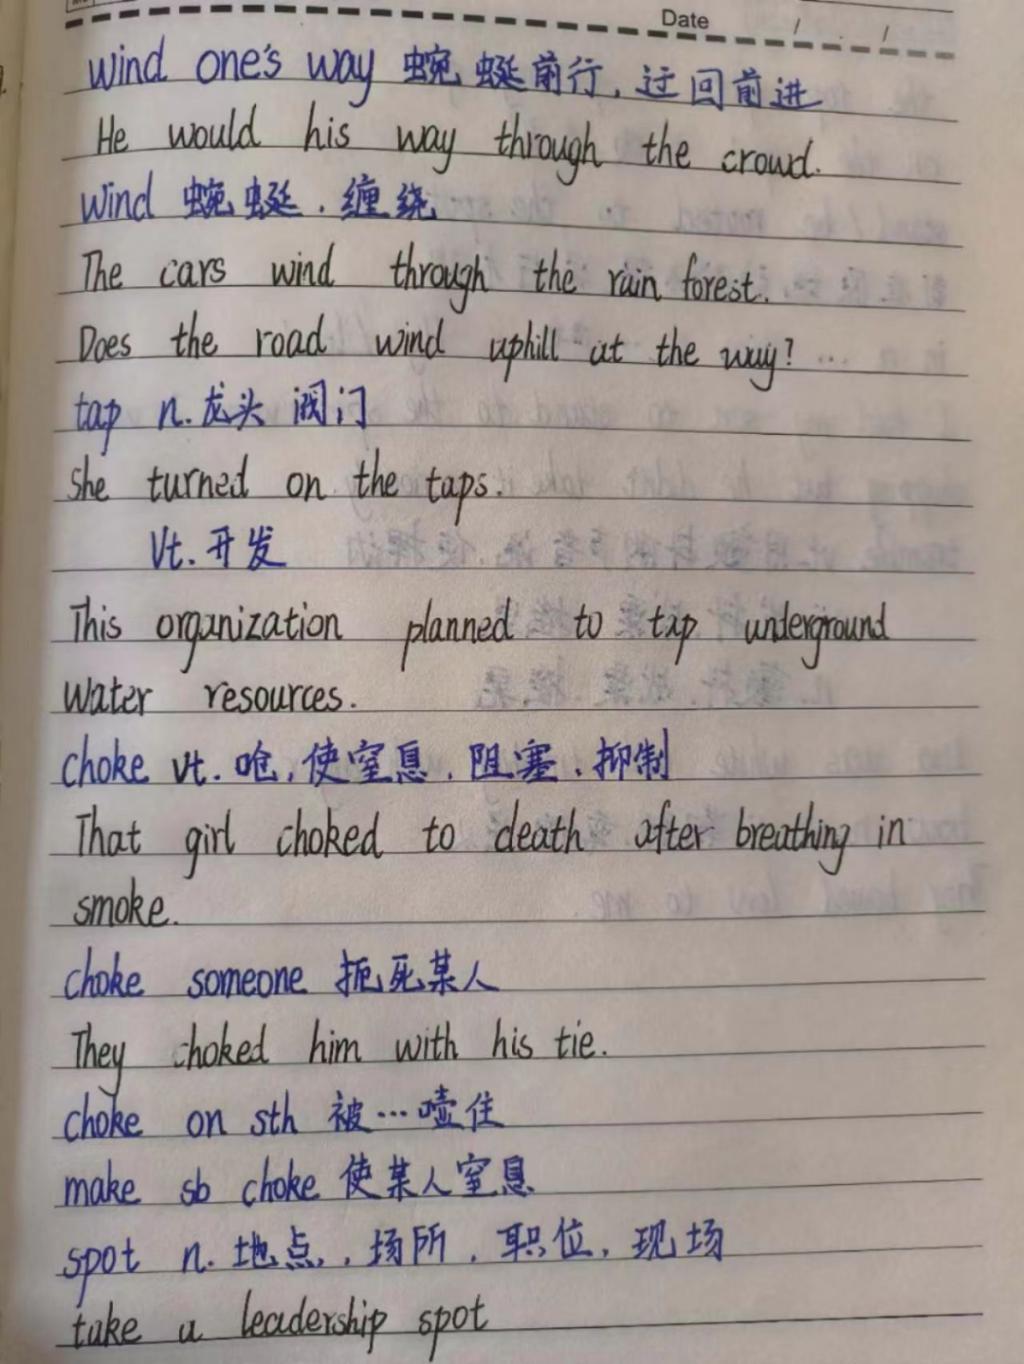 Date / . /
wind one's way 蜿蜒前行，迂回前进
He would his way through the crowd.
wind 蜿蜒．缠绕
The cars wind through the rain forest.
Does the road wind uphill at the way?
tap n.龙头 阀门
She turned on the taps.
Vt.开发
This organization planned to tap underground
water resources.
choke vt. 呛，使窒息．阻塞、抑制
That girl choked to death after breathing in
smoke.
choke someone 扼死某人
They choked him with his tie.
choke on sth 被…噎住
make sb choke 使某人窒息
spot n. 地点，，场所．职位，现场
take a leadership spot